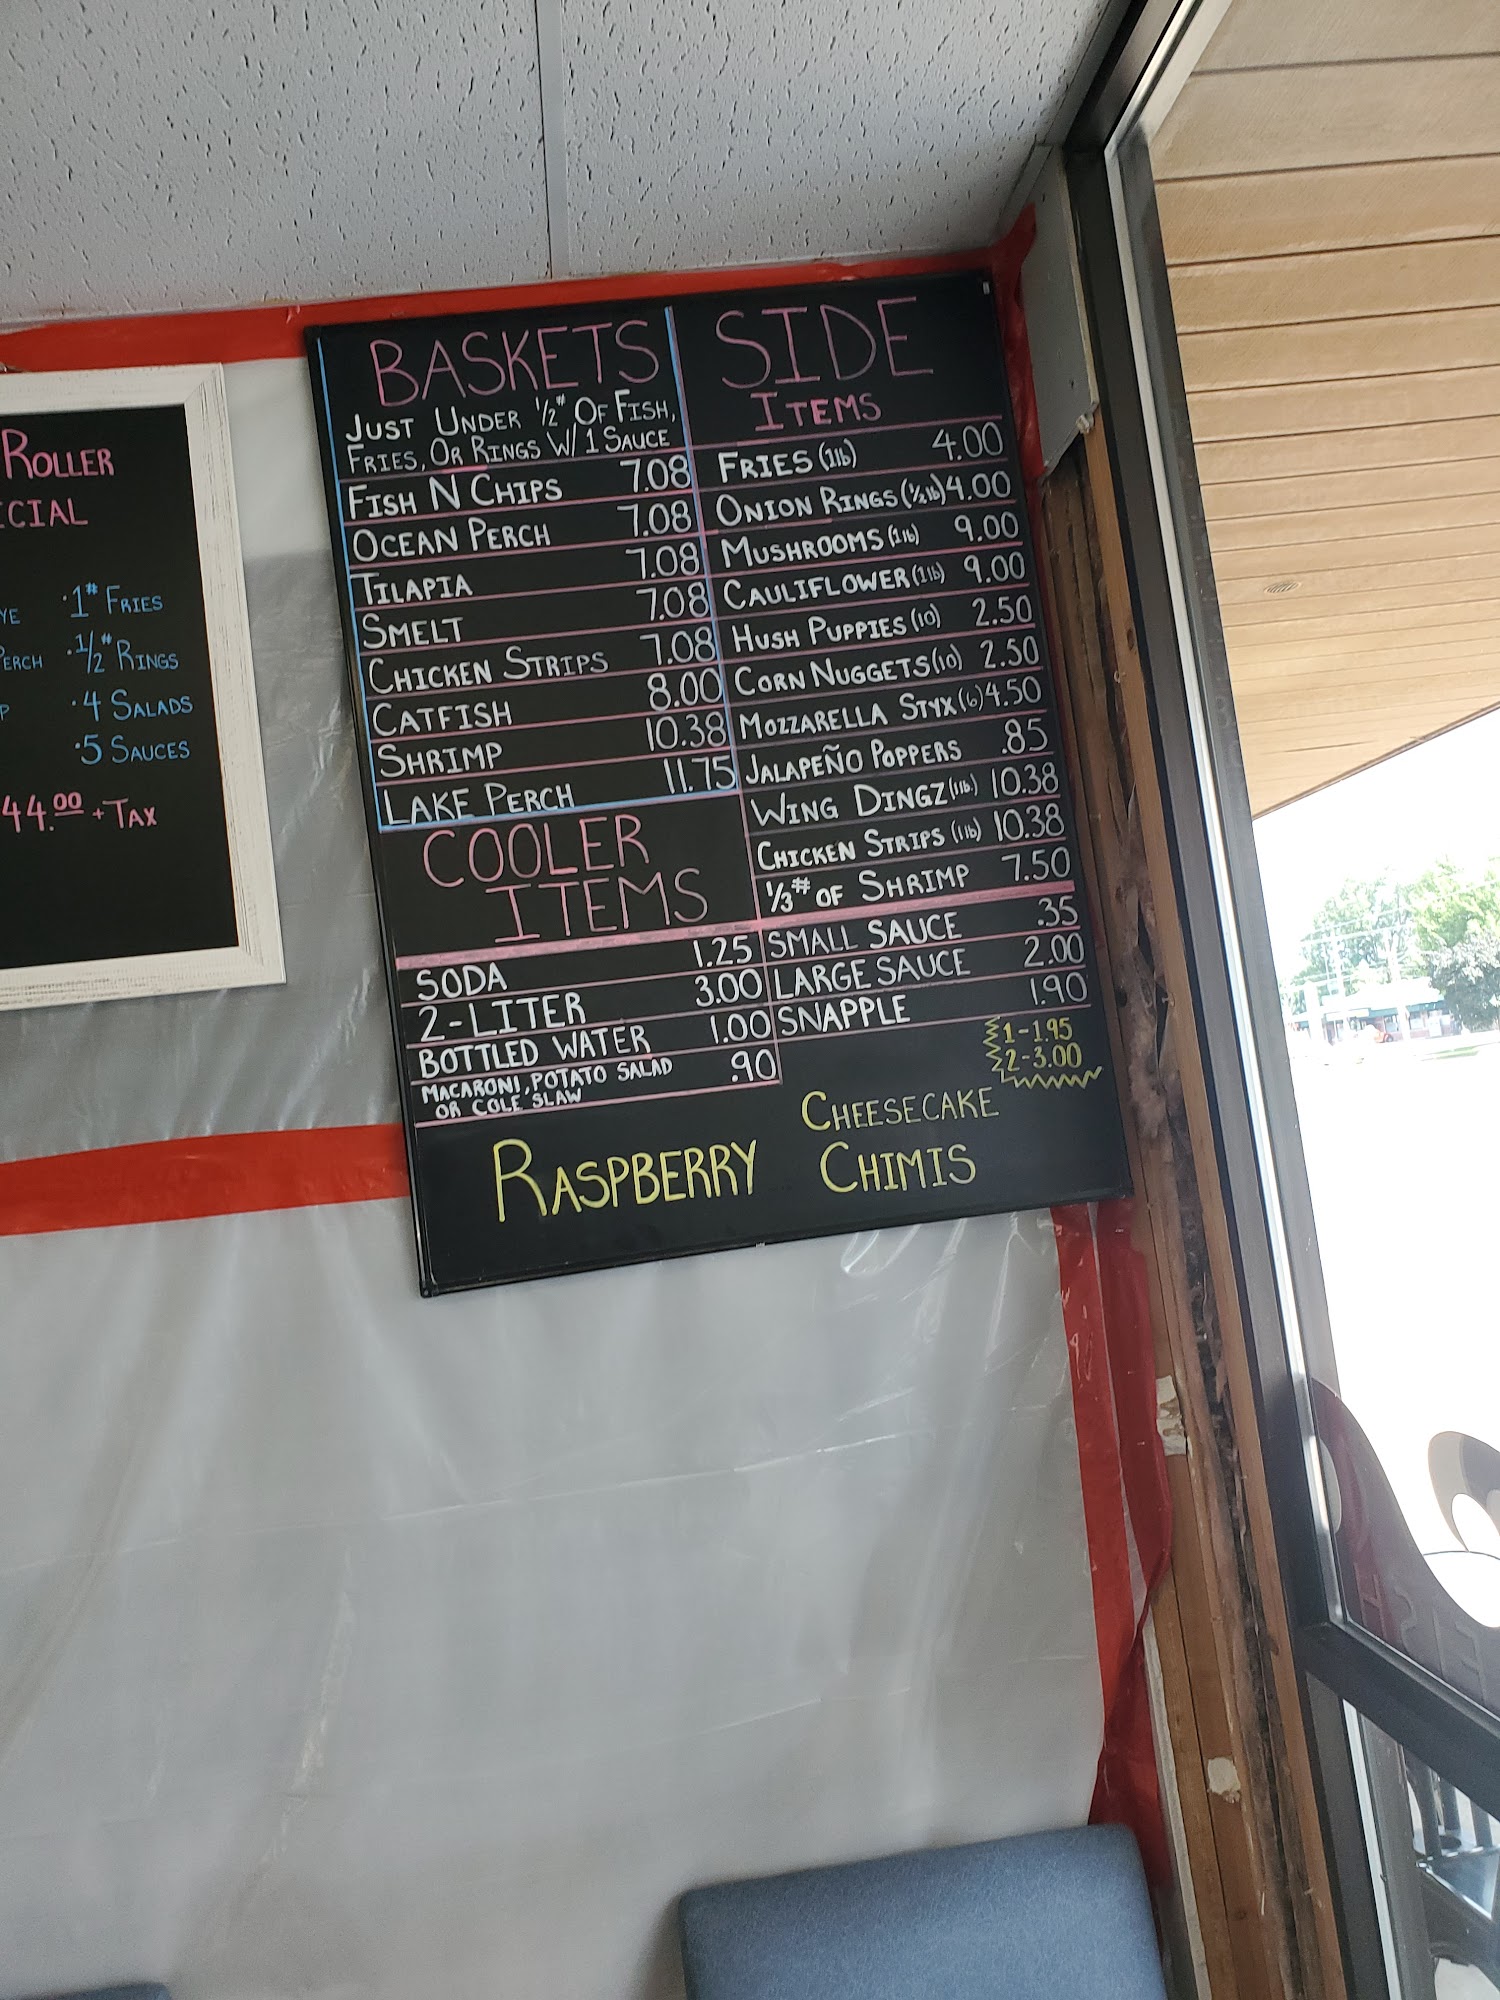 Roller
1# Fries
Perch · 1/2# Rings
· 4 Salads
· 5 Sauces
44.00 + Tax
BASKETS
Just Under 1/2# Of Fish,
Fries, Or Rings W/ 1 Sauce
Fish N Chips 7.08
Ocean Perch 7.08
Tilapia 7.08
Smelt 7.08
Chicken Strips 7.08
Catfish 8.00
Shrimp 10.38
Lake Perch 11.75
COOLER
ITEMS
SODA 1.25
2-LITER 3.00
BOTTLED WATER 1.00
MACARONI, POTATO SALAD .90
OR COLE SLAW
SIDE
Items
Fries (1lb) 4.00
Onion Rings (1/2 lb) 4.00
Mushrooms (1lb) 9.00
Cauliflower (1lb) 9.00
Hush Puppies (10) 2.50
Corn Nuggets (10) 2.50
Mozzarella Styx (6) 4.50
Jalapeño Poppers .85
Wing Dingz (1lb.) 10.38
Chicken Strips (1lb) 10.38
1/3# of Shrimp 7.50
SMALL SAUCE .35
LARGE SAUCE 2.00
SNAPPLE 1.90
1-1.95
2-3.00
Cheesecake
Raspberry Chimis